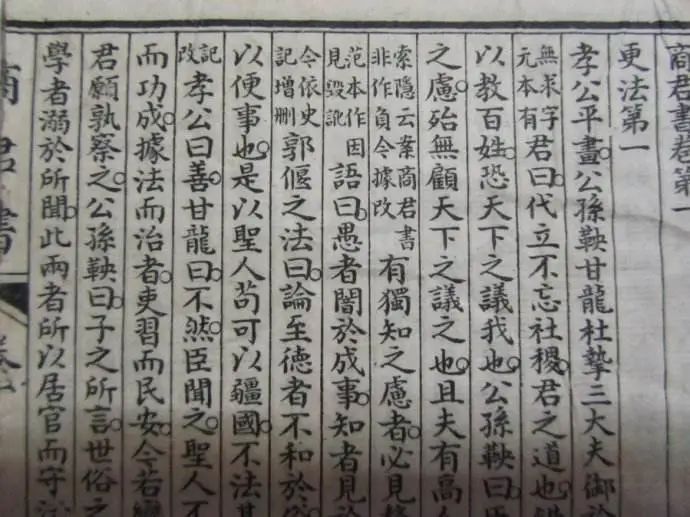 商君書卷第一
更法第一
孝公平畫。公孫鞅甘龍杜摯三大夫御於
無求字元本有君曰。代立不忘社稷。君之道也。錯
以教百姓。恐天下之議我也。公孫鞅曰。臣
之慮。殆無顧天下之議之也。且夫有高人
索隱云案商君書非作負今據改有獨知之慮者。必見
范本作因見毀訛語曰。愚者闇於成事。知者見於
今依史記增刪郭偃之法曰。論至德者不和於俗
以便事也。是以聖人苟可以疆國。不法其
記改孝公曰。善。甘龍曰。不然。臣聞之。聖人不
而功成。據法而治者。吏習而民安。今若變
君願孰察之。公孫鞅曰。子之所言。世俗之
學者溺於所聞。此兩者所以居官而守法
商君書